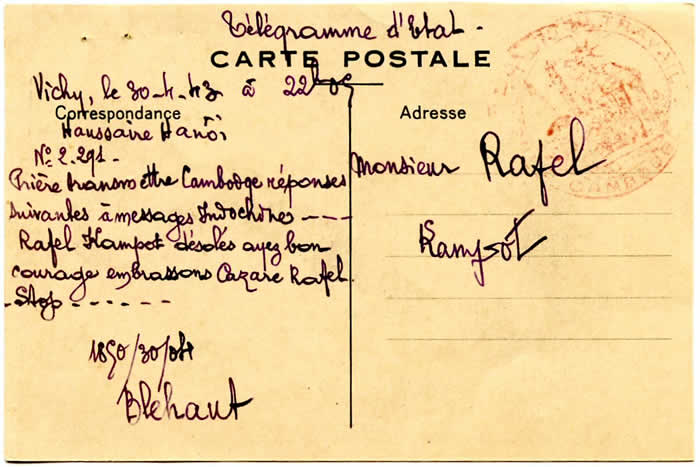 Télégramme d'Etat -
CARTE POSTALE
Vichy, le 30-4-43 à 22h00
Correspondance
Haussaire Hanôi
N° 2.291-
Prière transmettre Cambodge réponses
suivantes à messages Indochine ---
Rafel Kampot désolés ayez bon
courage embrassons Cazare Rafel
- Stop - - - - - -
1850/30/04
Bléhaut
Adresse
Monsieur Rafel
Kampot
TRAVAIL
CAMBODGE